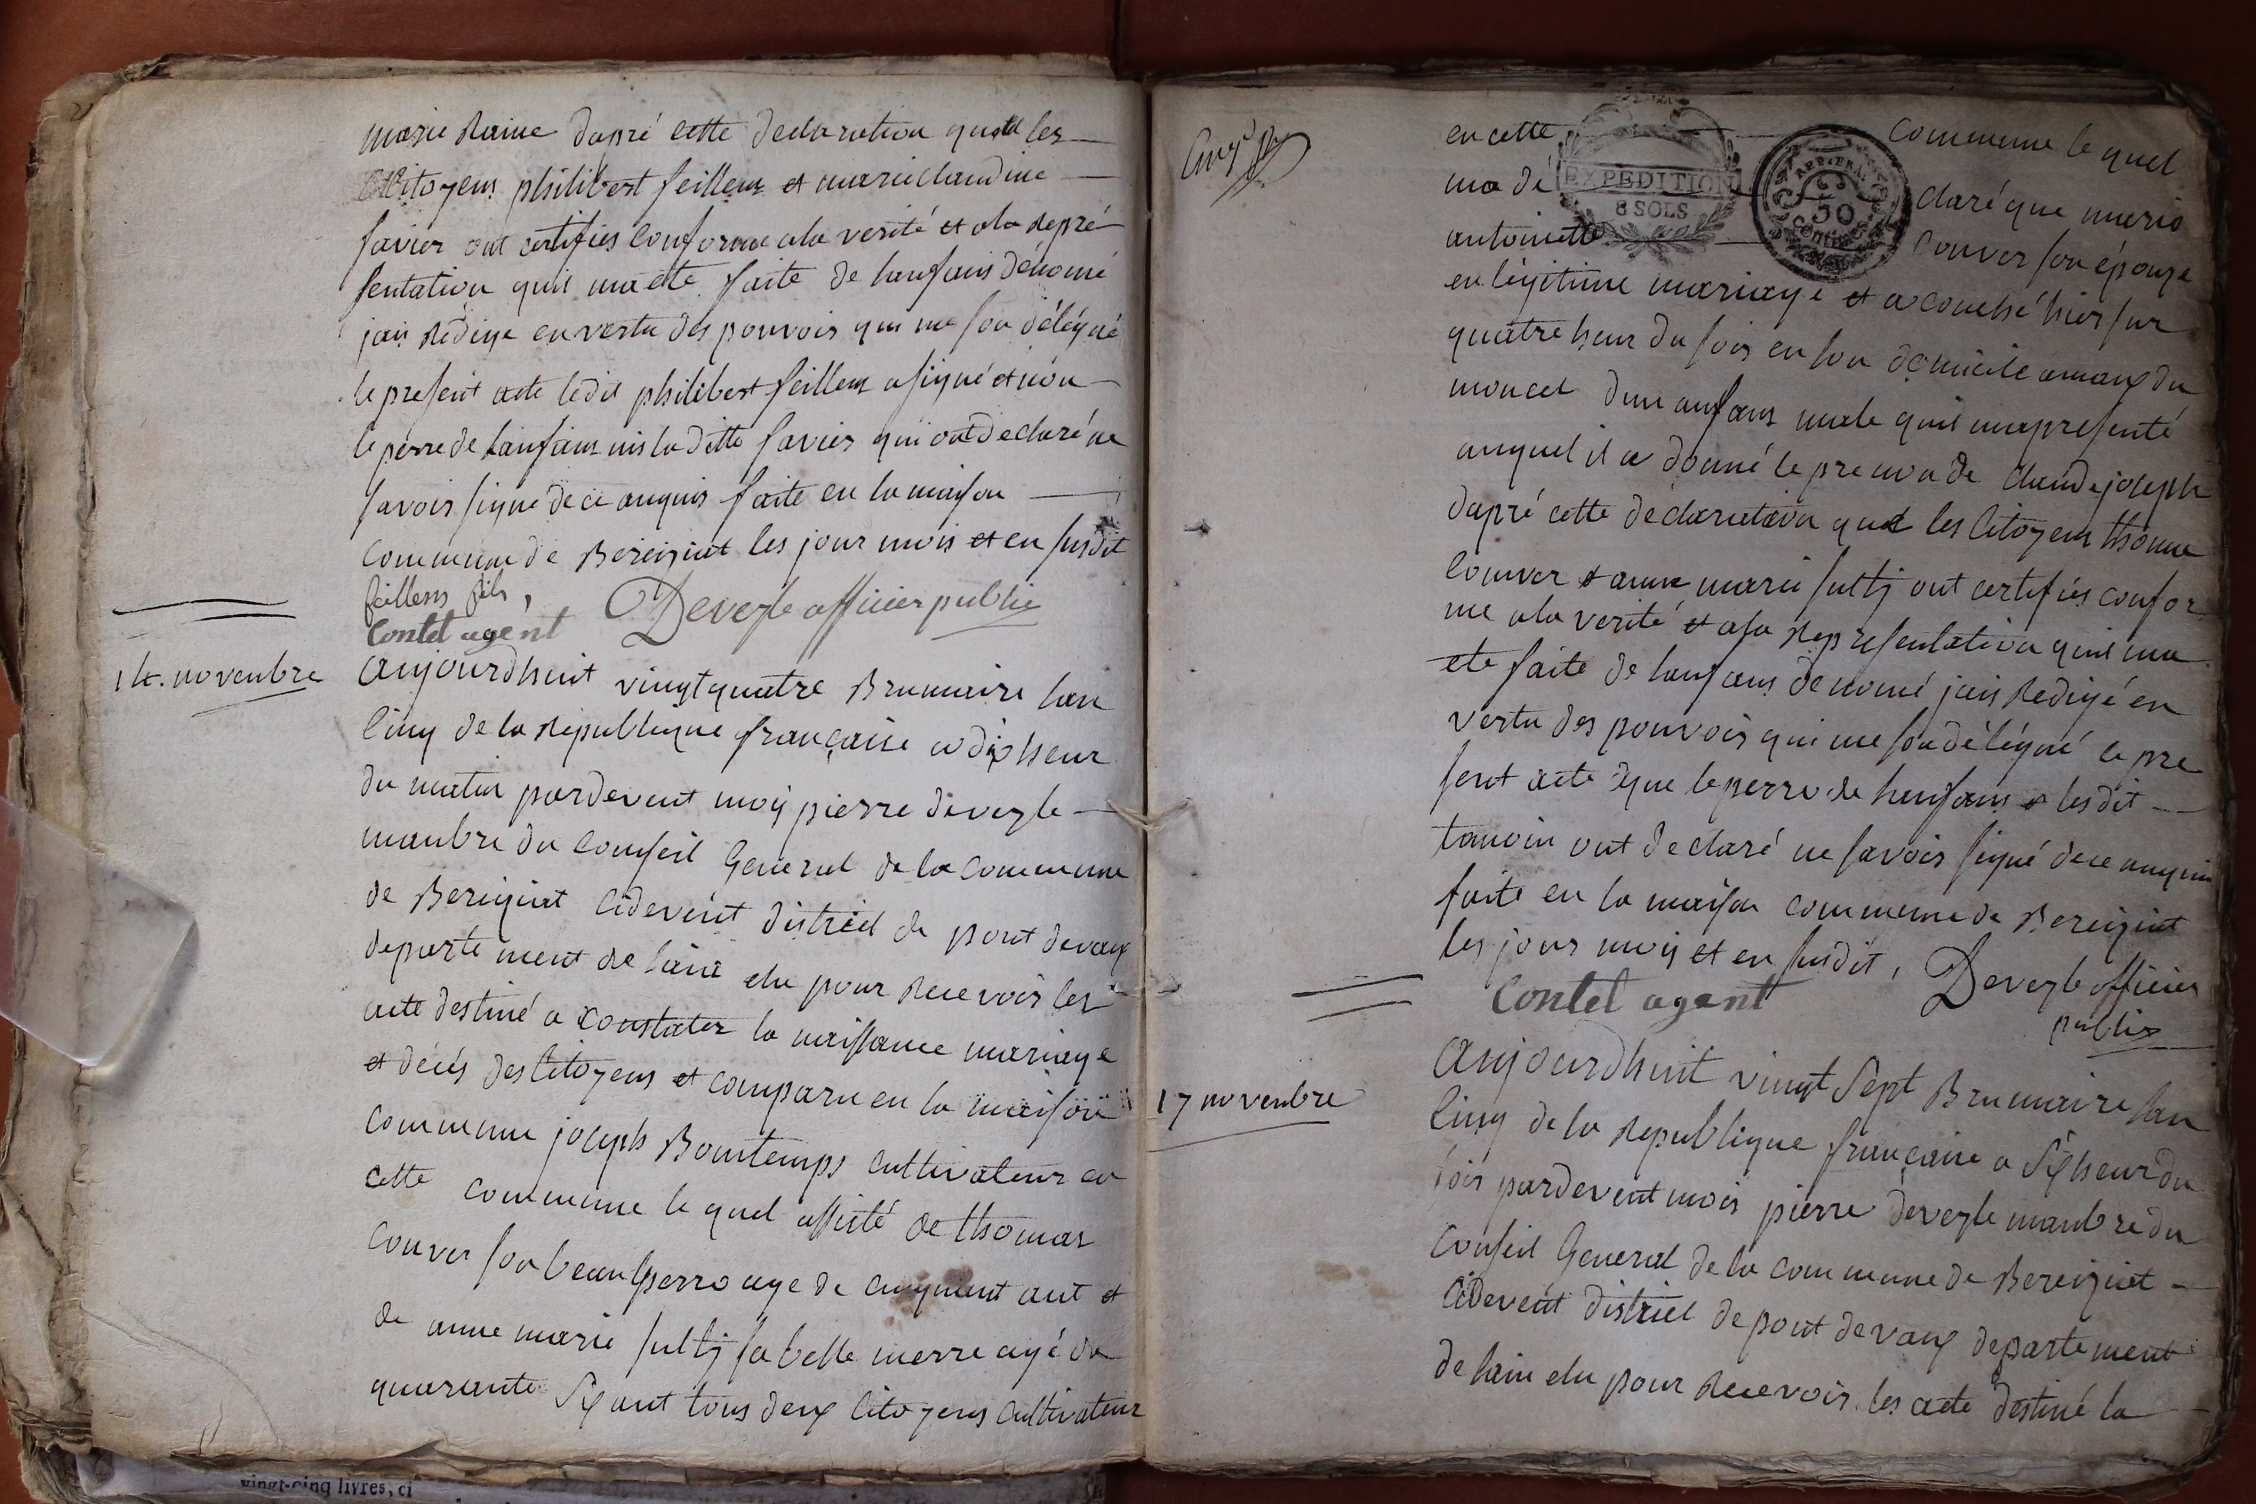 marie Raine dapré cette declaration quod les
Citoyens philibert feillens et marie claudine
favier ont certifiés conforme ala verité et ala repré
sentation quis ma ete faite de lanfans dénomé
jais Redige en vertu des pouvois qui me son délégué
le present acte ledit philibert feillens asigné et non
le perre de lanfans nis la ditte favier qui ont declaré ne
savois signe de ce anquis faite en la maison
commune de Bereiziat les jour mois et en susdit
feillens fils,
Contet agent
Deveyle officier public
14. novenbre
aujourdhuit vingt quatre Brumaire lan
Cinq de la Republique française a dix heur
du matin pardevent moy pierre deveyle
manbre du Conseil General de la Commune
de Bereiziat Cidevent district de pont devaux
departement de lain elu pour Recevois les
acte destiné a constater la naissance mariage
et décés des Citoyens et comparu en la maison
commune joseph Bontemps cultivateur en
cette commune le quel assisté de thomas
Couver son beau perre age de cinquent ant et
de anne marie sulty sa belle merre agé de
quarante six ant tous deux Citoyens cultivateur
en cette commune le quel
EXPEDITION
8 SOLS
50
CENTIMES
ma dé claré que marie
antoinette Couver son épouze
en légitime mariage et a couché hier sur
quatre heur du sois en son domicile amaux du
moncet dun anfans male quil mapresenté
auquel il a donné le prenon de Claude joseph
dapré cette declaration qued les Citoyens thoma
Couver et anne marie sulty ont certifiés confor
me ala verité et ala Representation quis ma
ete faite de lanfans denomé jais Redigé en
vertu des pouvois qui me son délégué le pre
sent acte que le perre de lanfans et lesdit
tamoin ont declaré ne savois signé dece anquis
faite en la maison commune de Bereiziat
les jours mois et en susdit,
Deveyle officier
public
Contet agent
17 novenbre
aujourdhuit vingt sept Brumaire lan
Cinq de la Republique française a six heur du
sois pardevent mois pierre deveyle manbre du
Conseil General de la commune de Bereiziat
Cidevent district de pont devaux departement
de lain elu pour Recevois les acte destiné la
vingt-cinq livres, ci